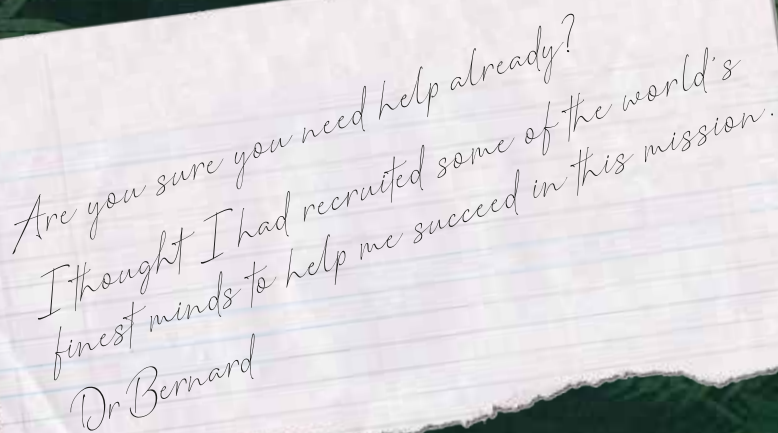 Are you sure you need help already?
I thought I had recruited some of the world's
finest minds to help me succeed in this mission.
Dr Bernard